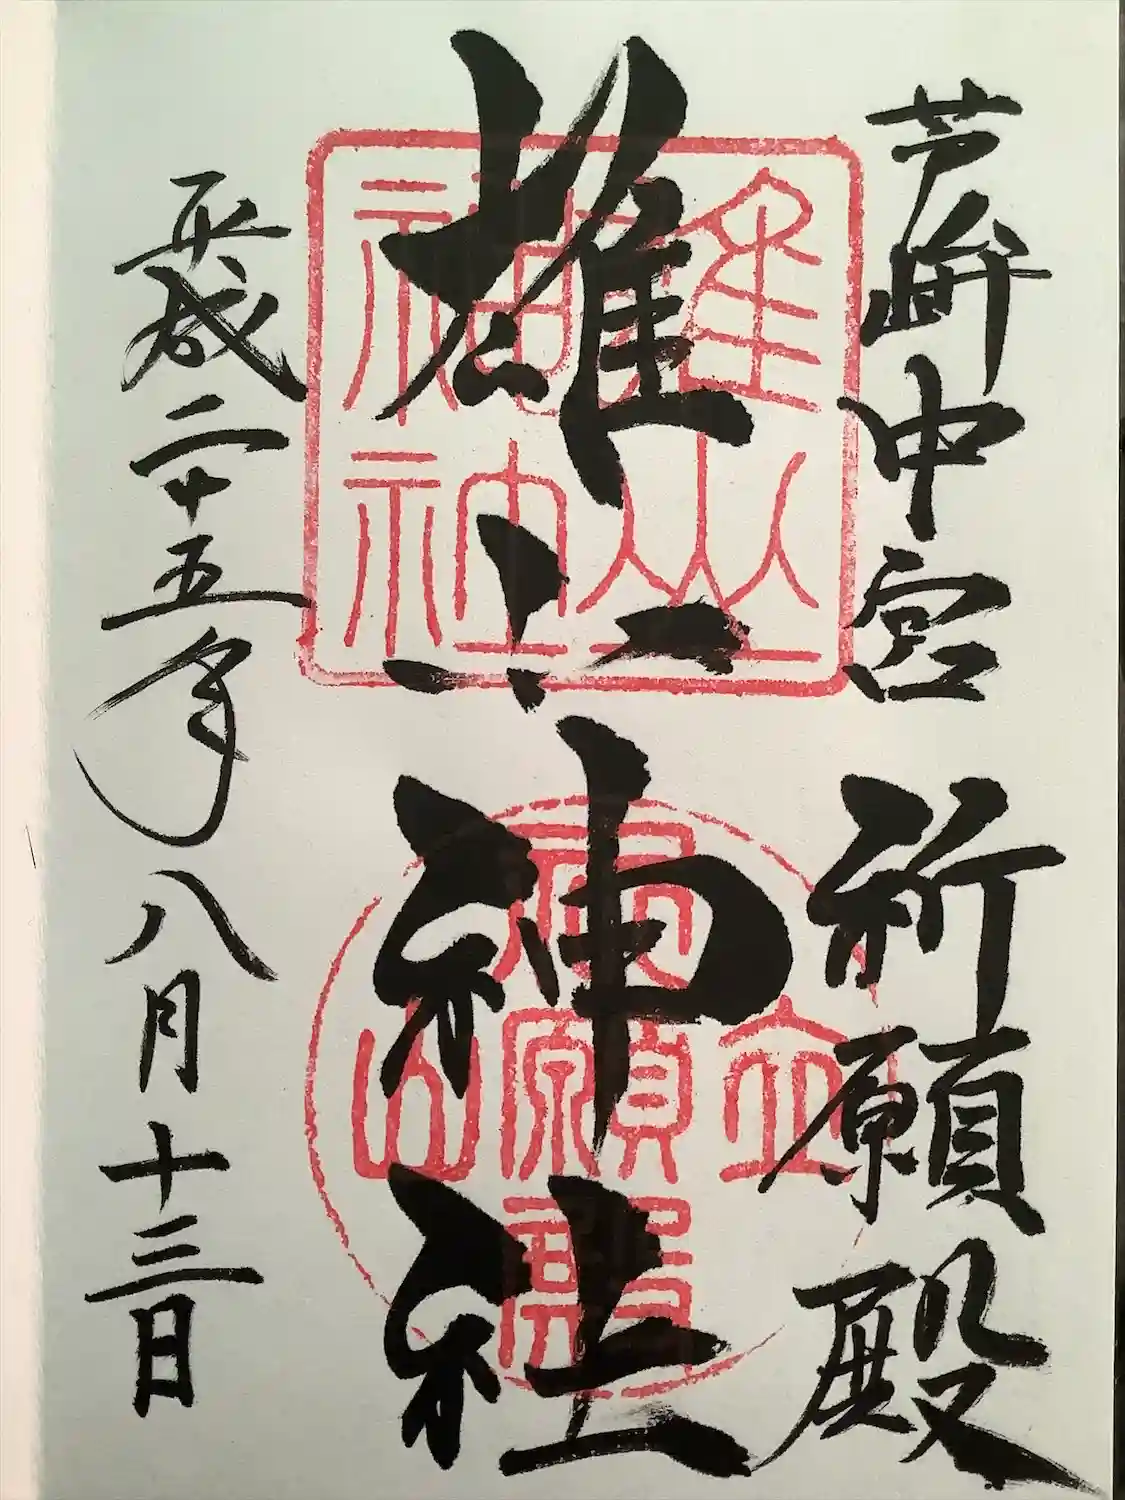 芦峅中宮祈願殿
雄山神社
平成二十五年八月十三日
雄山
神社
立山
祈願殿